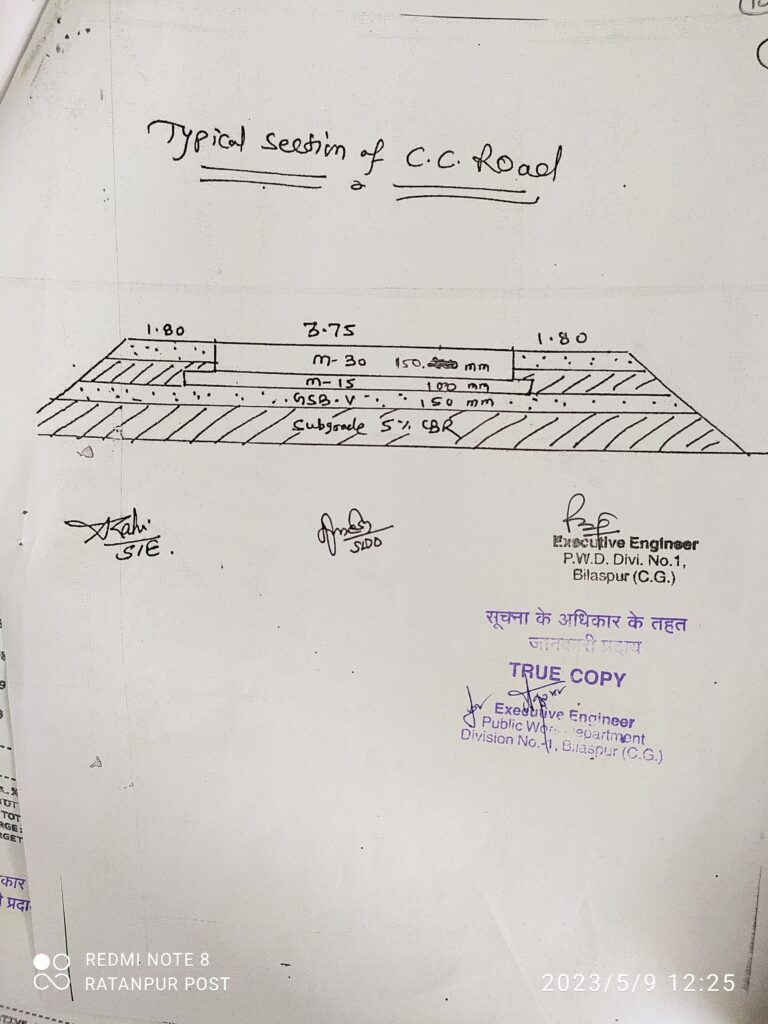 Typical Section of C.C. Road
1.80 3.75 1.80
M-30 150 mm
M-15 100 mm
GSB-V 150 mm
Subgrade 5% CBR
S/E.
SDO
Executive Engineer
P.W.D. Divi. No.1,
Bilaspur (C.G.)
सूचना के अधिकार के तहत
जानकारी प्रदाय
TRUE COPY
for
Executive Engineer
Public Works Department
Division No.-1, Bilaspur (C.G.)
TOT
RGE:
RGET
कार
प्रदा
REDMI NOTE 8
RATANPUR POST
2023/5/9 12:25